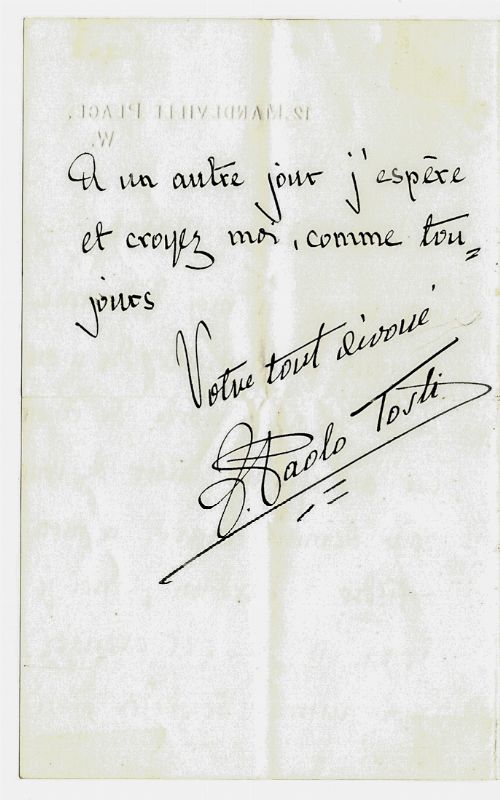 12, MANDEVILLE PLACE,
W.
A un autre jour j'espère
et croyez moi, comme tou=
jours
Votre tout dévoué
F. Paolo Tosti